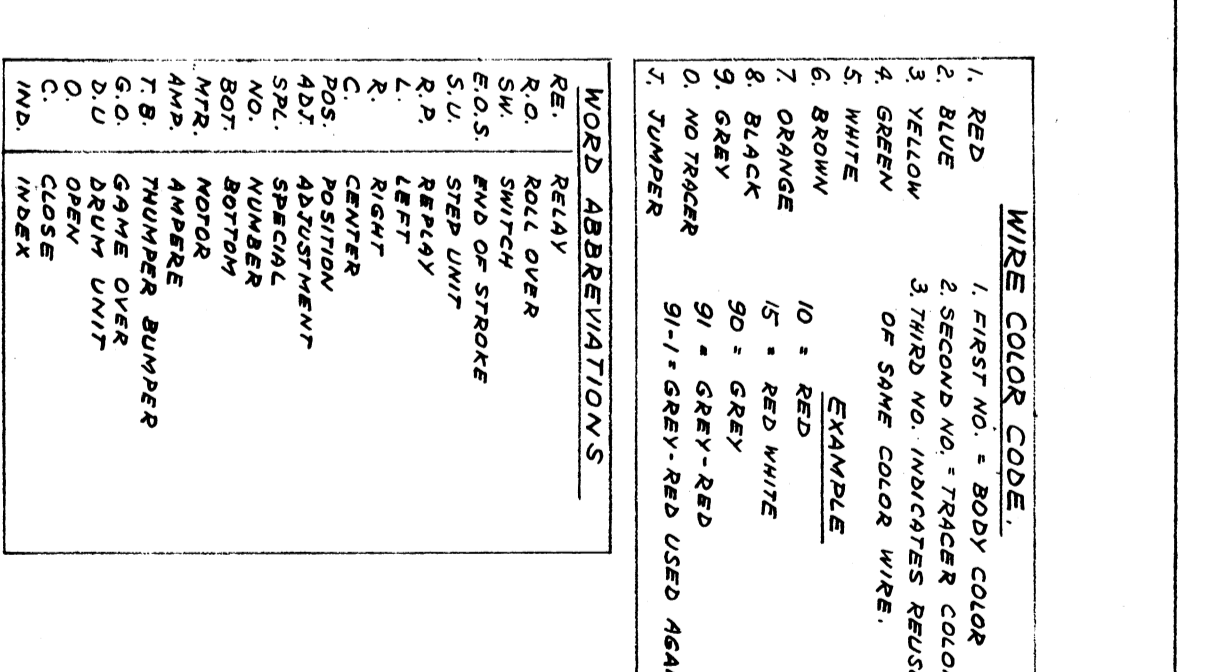 WIRE COLOR CODE.
1. RED
2. BLUE
3. YELLOW
4. GREEN
5. WHITE
6. BROWN
7. ORANGE
8. BLACK
9. GREY
0. NO TRACER
J. JUMPER
1. FIRST NO. = BODY COLOR
2. SECOND NO. = TRACER COLO
3. THIRD NO. INDICATES REUS
OF SAME COLOR WIRE.
EXAMPLE
10 = RED
15 = RED WHITE
90 = GREY
91 = GREY-RED
91-1 = GREY-RED USED AGA
WORD ABBREVIATIONS
RE. RELAY
R.O. ROLL OVER
SW. SWITCH
E.O.S. END OF STROKE
S.U. STEP UNIT
R.P. REPLAY
L. LEFT
R. RIGHT
C. CENTER
POS. POSITION
ADJ. ADJUSTMENT
SPL. SPECIAL
NO. NUMBER
BOT. BOTTOM
MTR. MOTOR
AMP. AMPERE
T.B. THUMPER BUMPER
G.O. GAME OVER
D.U DRUM UNIT
O. OPEN
C. CLOSE
IND. INDEX